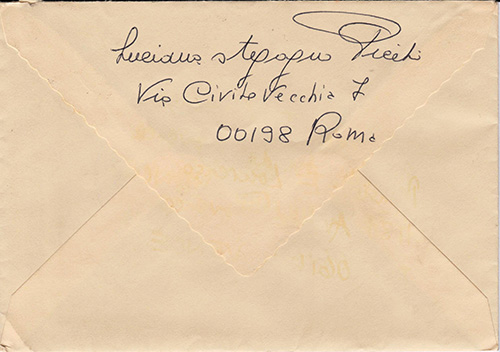 Luciana Stegagno Picchi
Via Civite Vecchia 7
00198 Roma